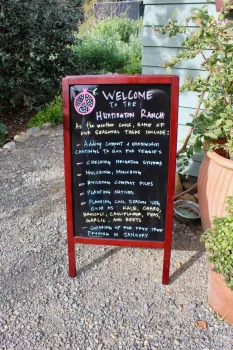 WELCOME
TO THE
HUNTINGTON RANCH
As the weather cools, some of
our seasonal tasks include:
- Adding compost &
continue to for veggies
- Checking irrigation systems
- Mulching, mulching
- Building compost piles
- Planting natives
- Planting cool season veg
such as: kale, chard,
broccoli, cauliflower, peas,
garlic, and beets
- Gearing up for fruit tree
pruning in January